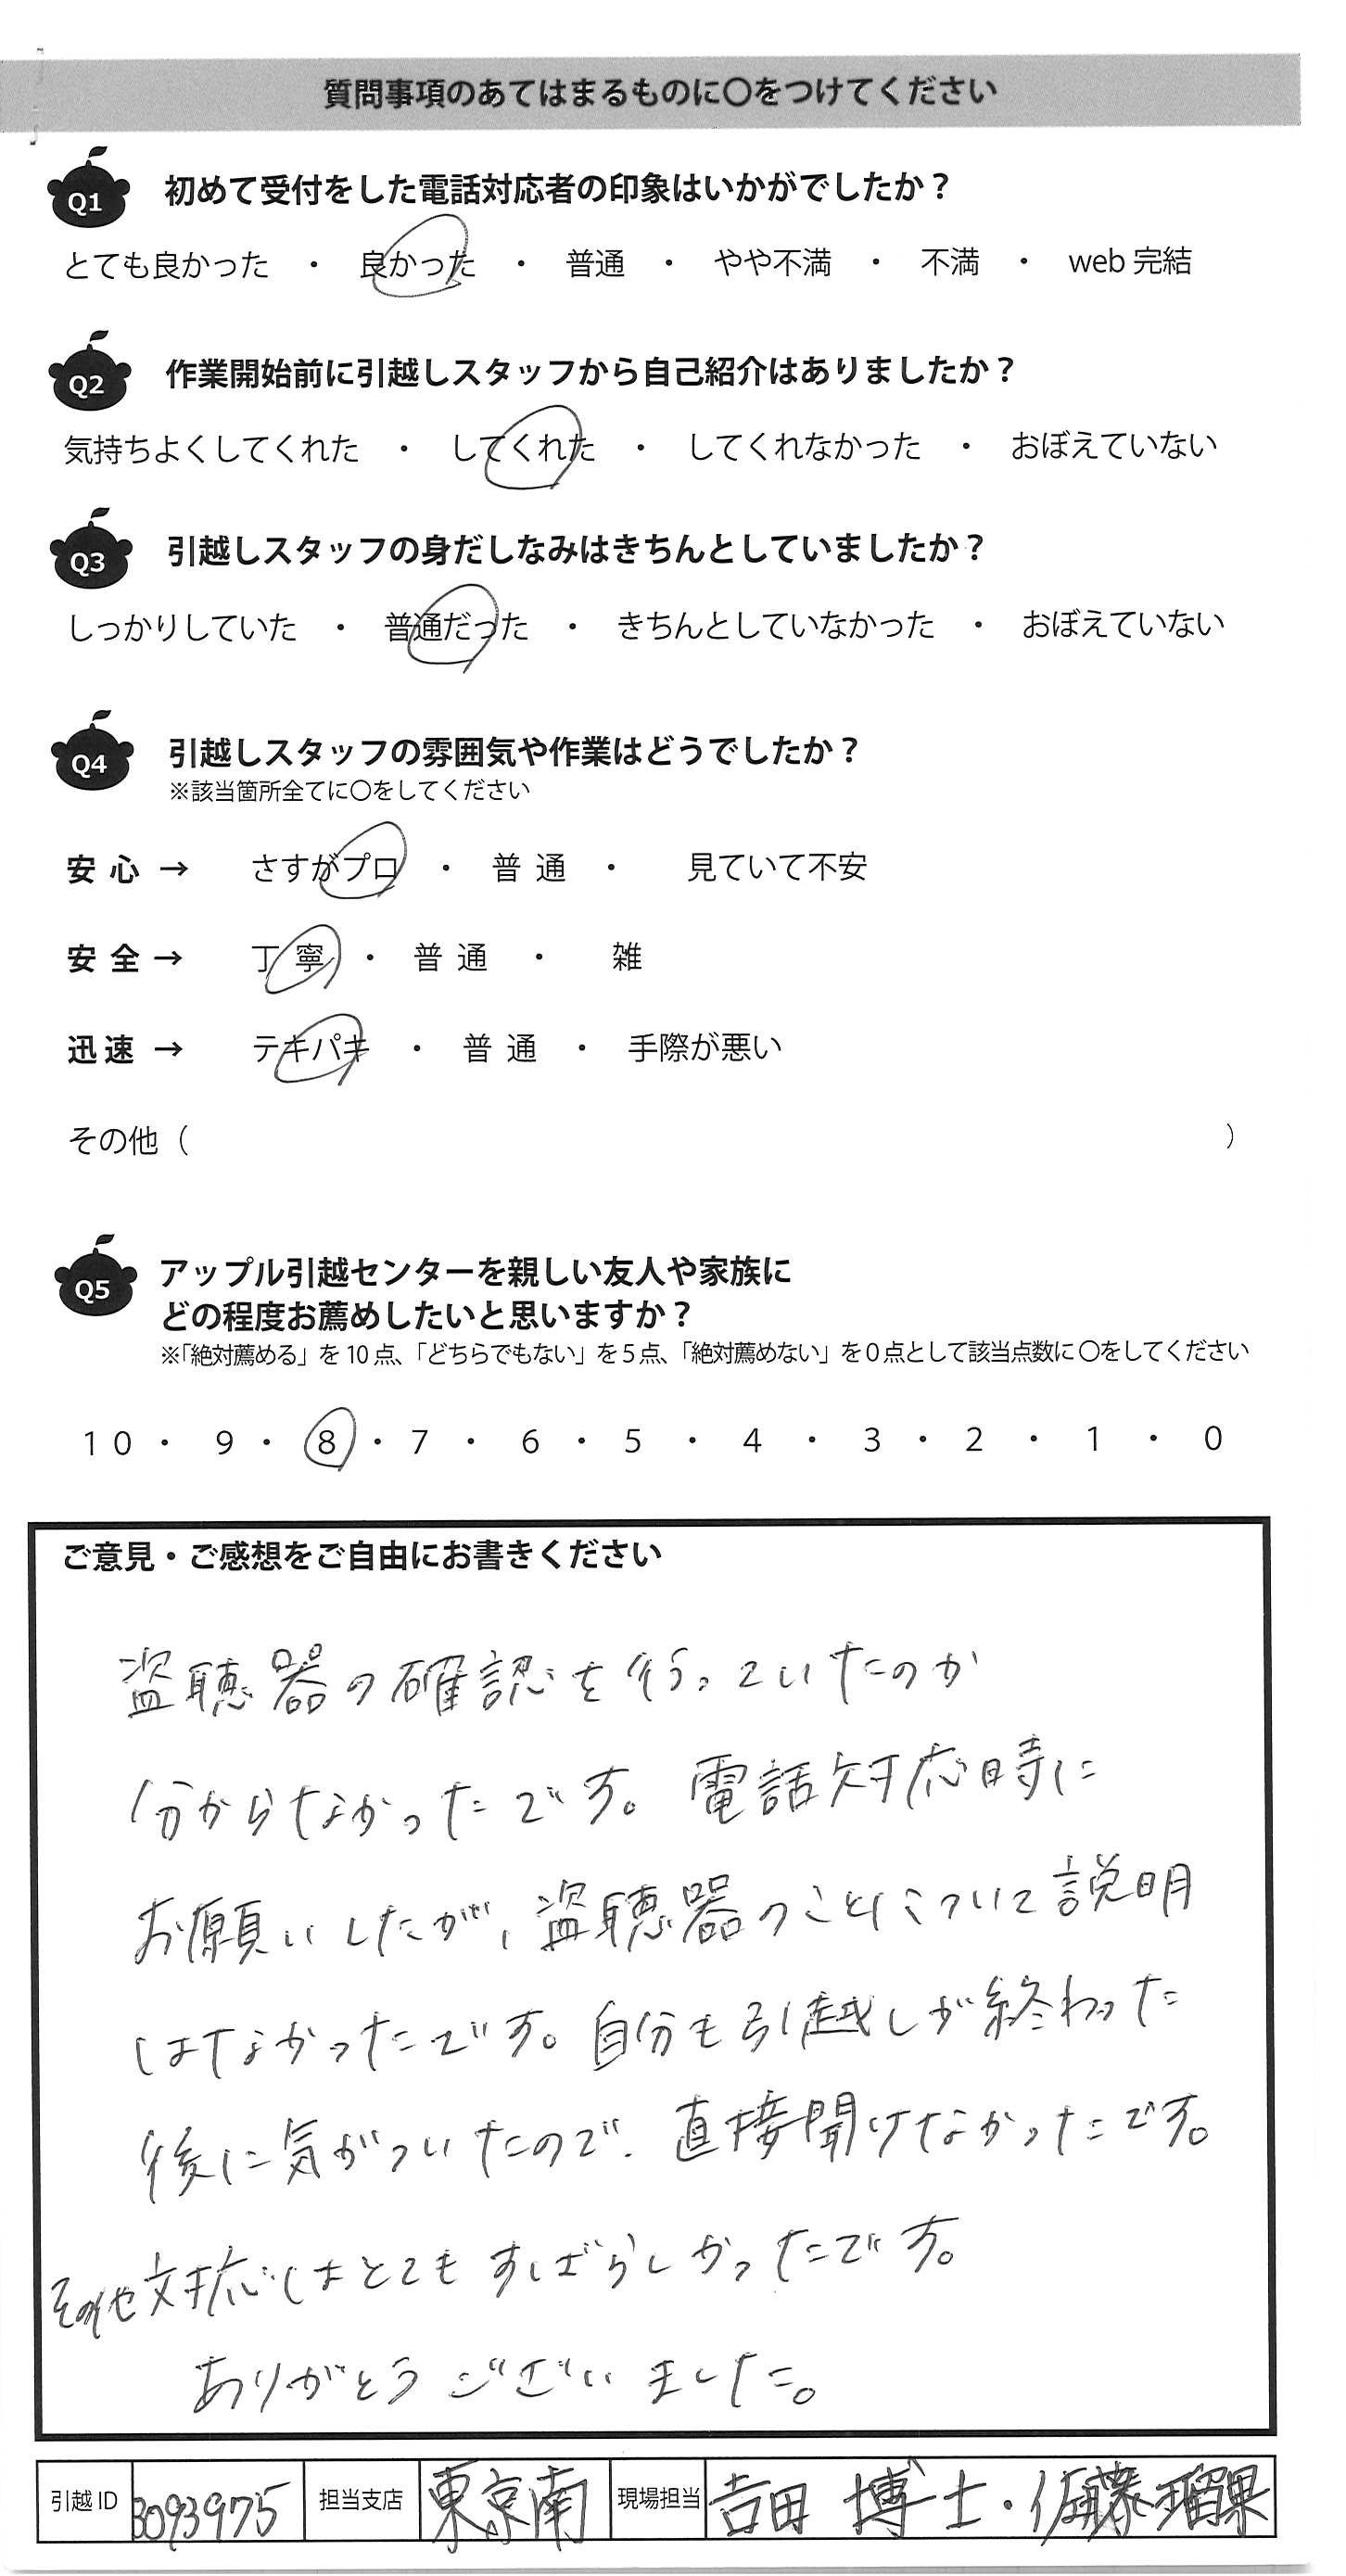 質問事項のあてはまるものに〇をつけてください
Q1 初めて受付をした電話対応者の印象はいかがでしたか？
とても良かった ・ 良かった ・ 普通 ・ やや不満 ・ 不満 ・ web 完結
Q2 作業開始前に引越しスタッフから自己紹介はありましたか？
気持ちよくしてくれた ・ してくれた ・ してくれなかった ・ おぼえていない
Q3 引越しスタッフの身だしなみはきちんとしていましたか？
しっかりしていた ・ 普通だった ・ きちんとしていなかった ・ おぼえていない
Q4 引越しスタッフの雰囲気や作業はどうでしたか？
※該当箇所全てに〇をしてください
安心 → さすがプロ ・ 普通 ・ 見ていて不安
安全 → 丁寧 ・ 普通 ・ 雑
迅速 → テキパキ ・ 普通 ・ 手際が悪い
その他（ ）
Q5 アップル引越センターを親しい友人や家族に
どの程度お薦めしたいと思いますか？
※「絶対薦める」を 10 点、「どちらでもない」を 5 点、「絶対薦めない」を 0 点として該当点数に〇をしてください
10 ・ 9 ・ 8 ・ 7 ・ 6 ・ 5 ・ 4 ・ 3 ・ 2 ・ 1 ・ 0
ご意見・ご感想をご自由にお書きください
盗聴器の確認を行っていたのか
分からなかったです。電話対応時に
お願いしたが、盗聴器のことについて説明
はなかったです。自分も引越しが終わった
後に気がついたので、直接聞けなかったです。
その他対応はとてもすばらしかったです。
ありがとうございました。
引越 ID 3093975 担当支店 東京南 現場担当 吉田 博士・佐藤瑠果